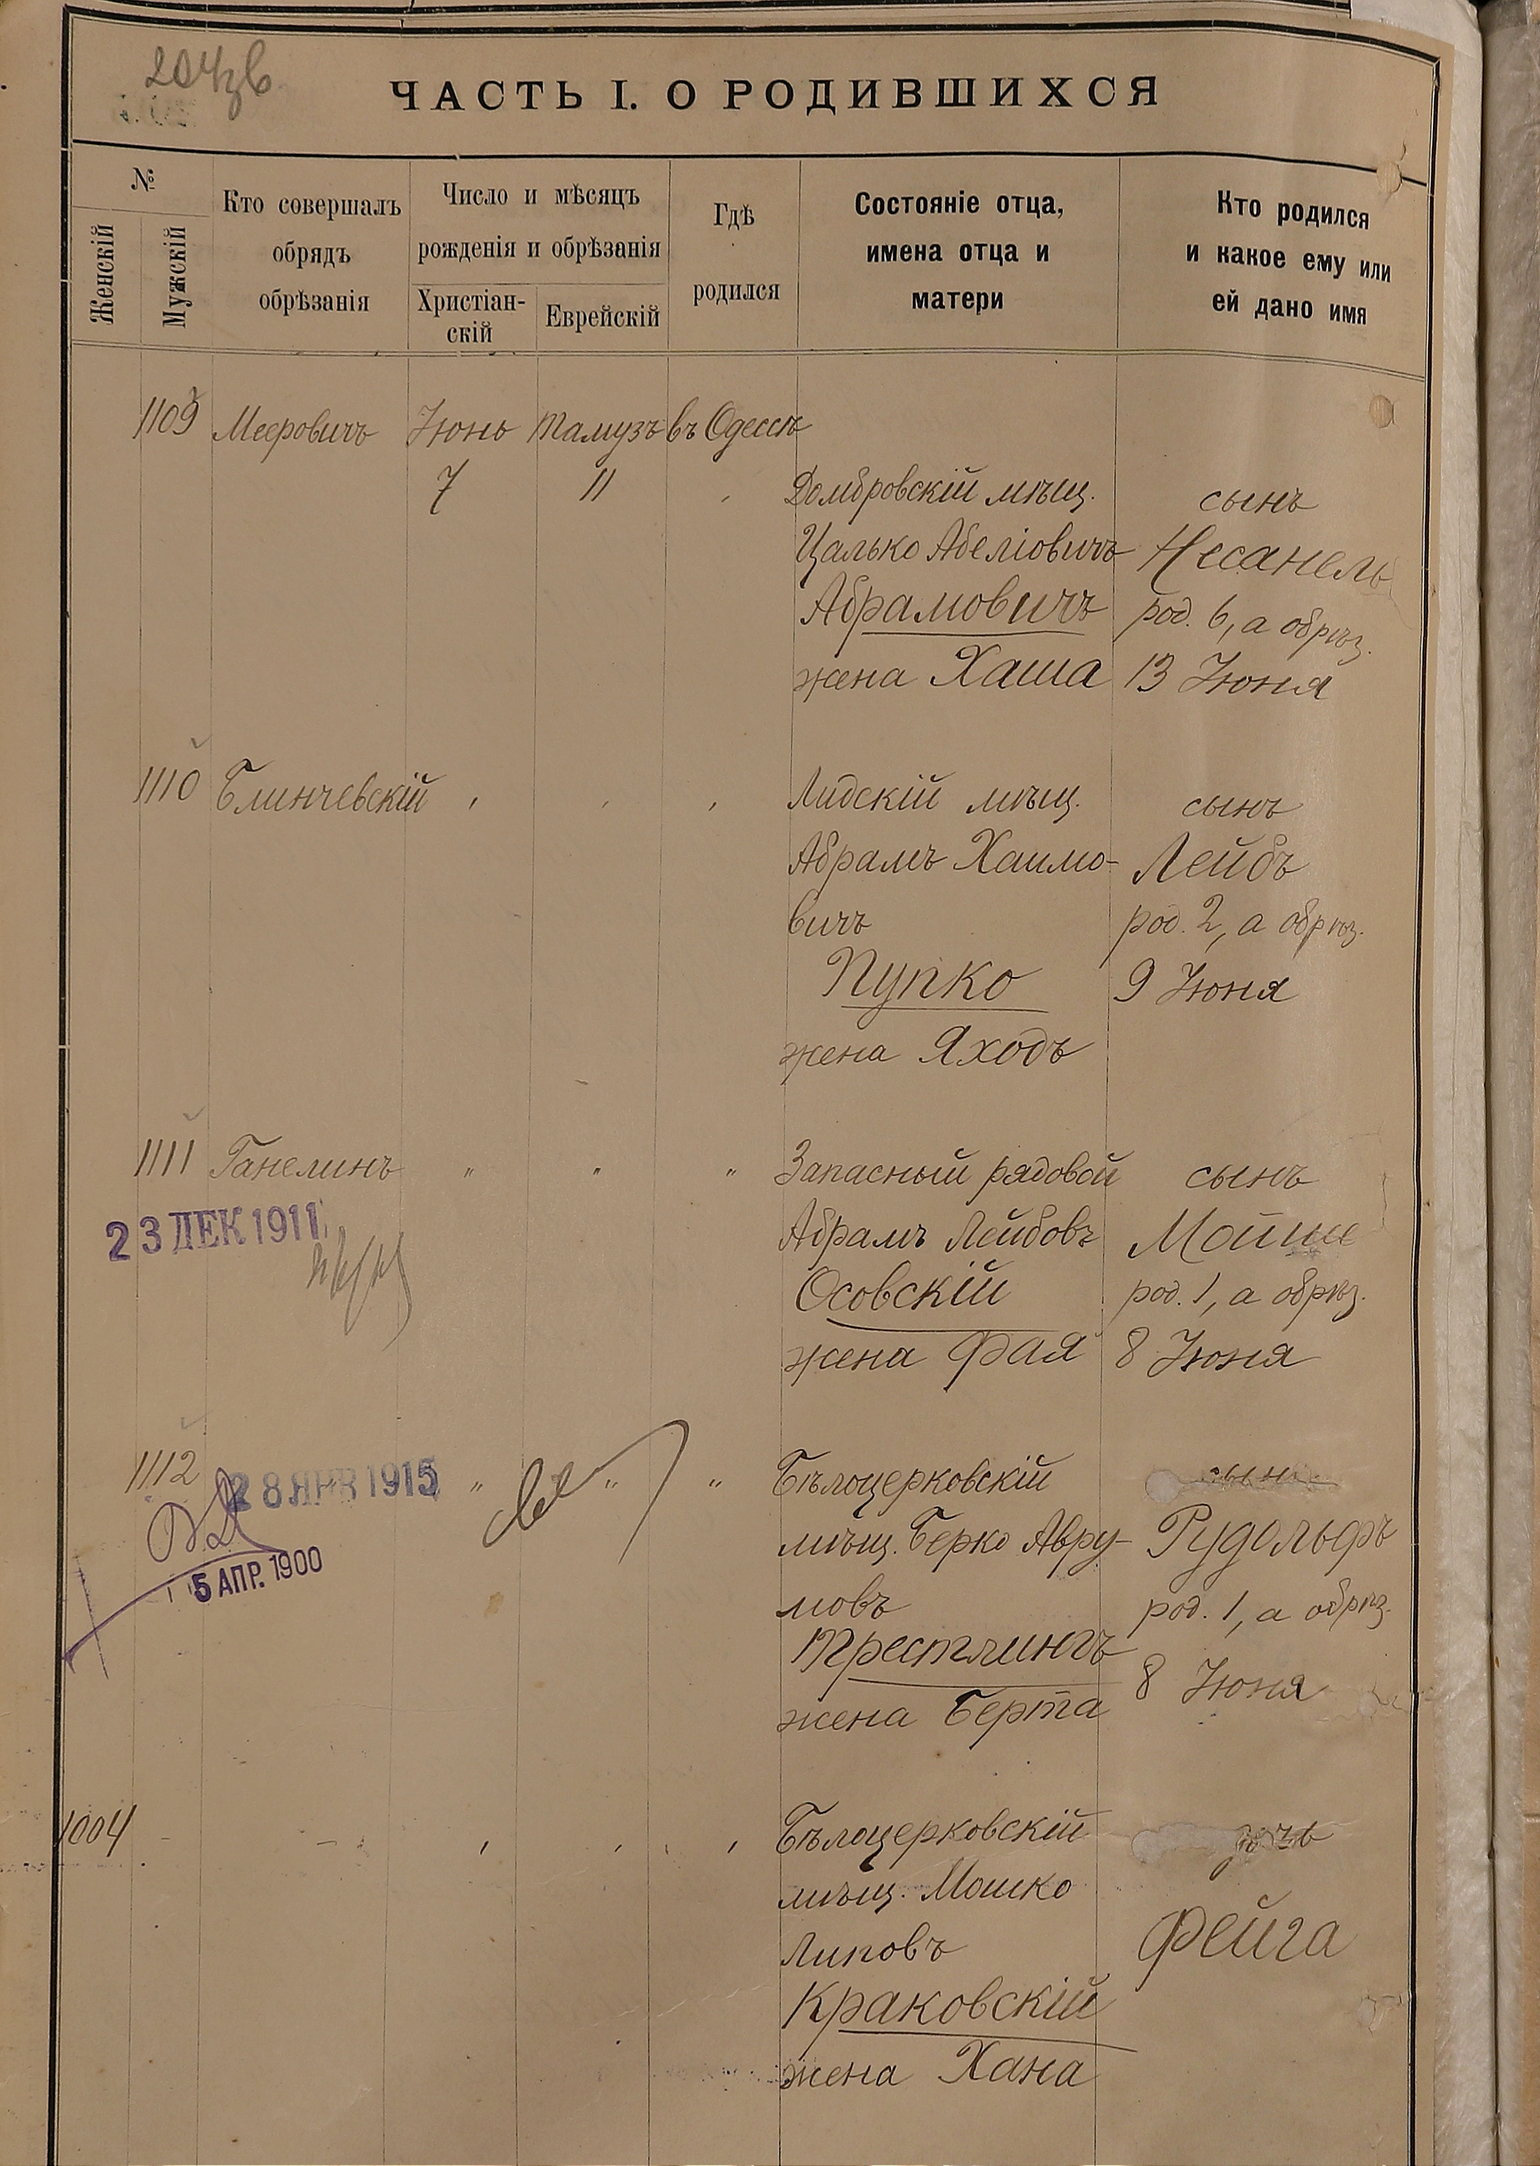 204зв
ЧАСТЬ I. О РОДИВШИХСЯ
№
Женскій
Мужскій
Кто совершалъ
обрядъ
обрѣзанія
Число и мѣсяцъ
рожденія и обрѣзанія
Христіан-
скій
Еврейскій
Гдѣ
родился
Состояніе отца,
имена отца и
матери
Кто родился
и какое ему или
ей дано имя
1109 Мееровичъ Іюнь Тамузъ въ Одессѣ
7 11
Домбровскій мѣщ.
Цалько Абеліовичъ
Абрамовичъ
жена Хаша
сынъ
Несанель
род. 6, а обрѣз.
13 Іюня
1110 Блинчевскій
Лидскій мѣщ.
Абрамъ Хаимо-
вичъ
Пупко
жена Яходъ
сынъ
Лейбъ
род. 2, а обрѣз.
9 Іюня
1111 Ганелинъ " " "
23 ДЕК 1911
Запасный рядовой
Абрамъ Лейбовъ
Осовскій
жена Фая
сынъ
Мойше
род. 1, а обрѣз.
8 Іюня
1112 " " "
28 ЯНВ 1915
5 АПР. 1900
Бѣлоцерковскій
мѣщ. Берко Авру-
мовъ
Трестлингъ
жена Берта
сынъ
Рудольфъ
род. 1, а обрѣз.
8 Іюня
1004
Бѣлоцерковскій
мѣщ. Мошко
Липовъ
Краковскій
жена Хана
дочь
Фейга